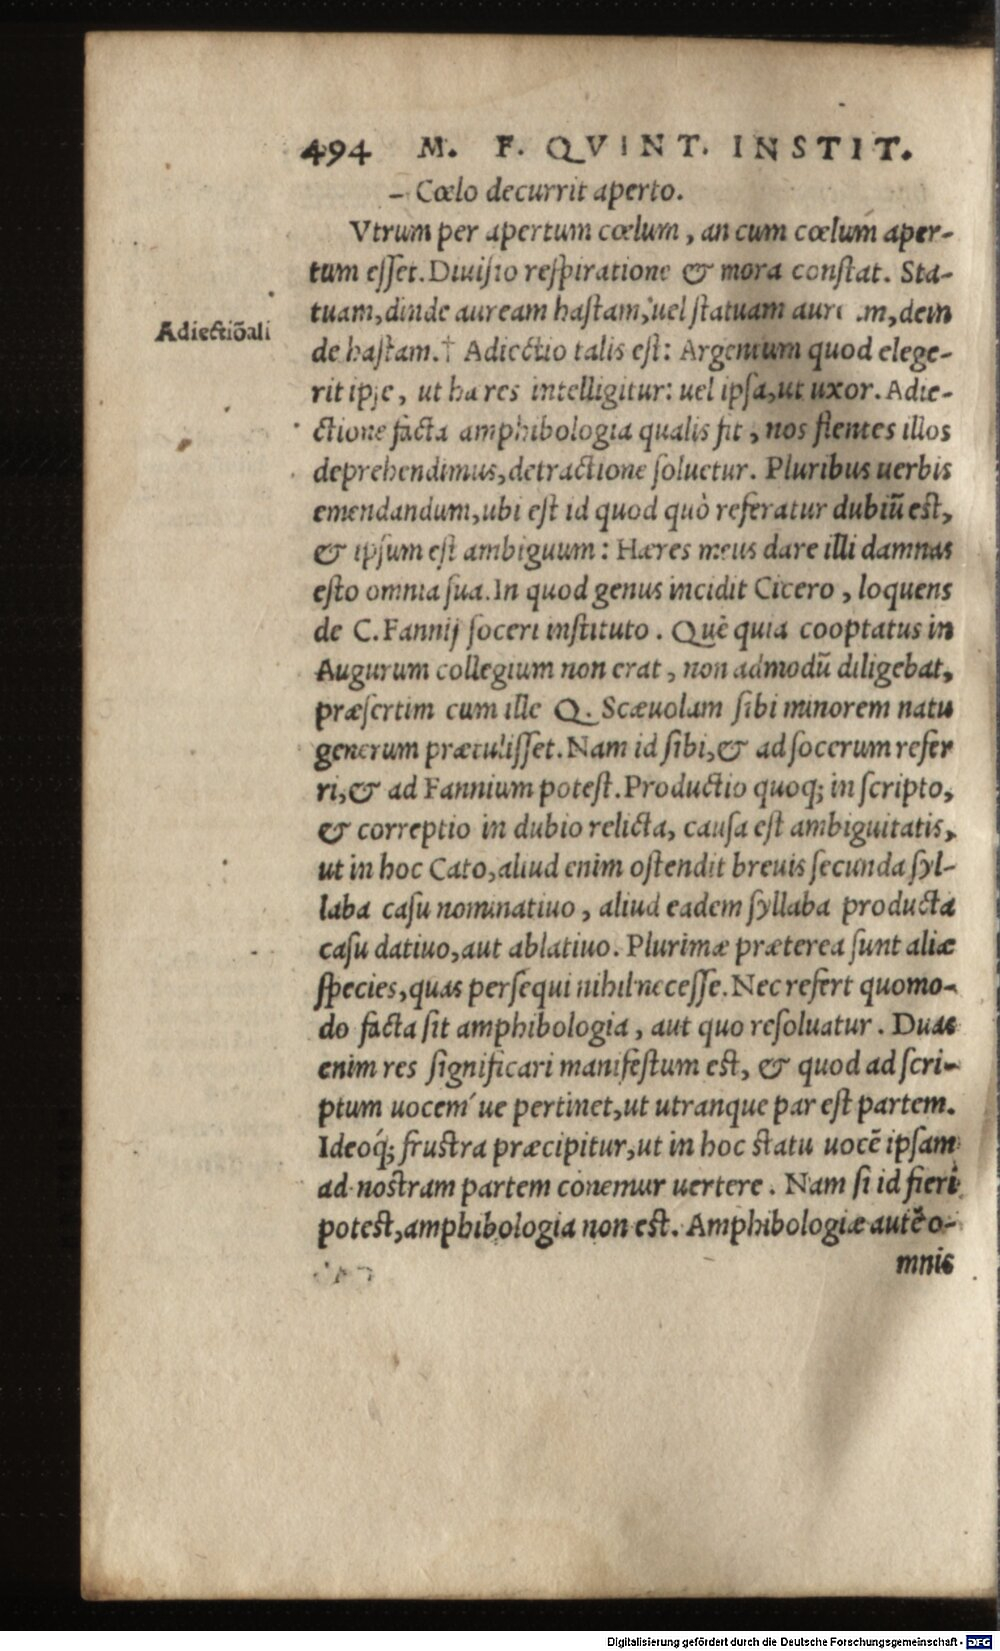 494 M. F. QVINT. INSTIT.
– Cœlo decurrit aperto.
Vtrum per apertum cœlum, an cum cœlum aper-
tum esset. Diuisio respiratione & mora constat. Sta-
tuam, dinde auream hastam, uel statuam aur m, dein
Adiectiõali
de hastam.† Adiectio talis est: Argentum quod elege-
rit ipse, ut hæres intelligitur: uel ipsa, ut uxor. Adie-
ctione facta amphibologia qualis fit, nos flentes illos
deprehendimus, detractione soluetur. Pluribus uerbis
emendandum, ubi est id quod quò referatur dubiũ est,
& ipsum est ambiguum: Hæres meus dare illi damnas
esto omnia sua. In quod genus incidit Cicero, loquens
de C. Fannij soceri instituto. Quẽ quia cooptatus in
Augurum collegium non erat, non admodũ diligebat,
præsertim cum ille Q. Scæuolam sibi minorem natu
generum prætulisset. Nam id sibi, & ad socerum refer
ri, & ad Fannium potest. Productio quoq; in scripto,
& correptio in dubio relicta, causa est ambiguitatis,
ut in hoc Cato, aliud enim ostendit breuis secunda syl-
laba casu nominatiuo, aliud eadem syllaba producta
casu datiuo, aut ablatiuo. Plurimæ præterea sunt aliæ
species, quas persequi nihil necesse. Nec refert quomo-
do facta sit amphibologia, aut quo resoluatur. Duas
enim res significari manifestum est, & quod ad scri-
ptum uocem´ue pertinet, ut utranque par est partem.
Ideoq́; frustra præcipitur, ut in hoc statu uocẽ ipsam
ad nostram partem conemur uertere. Nam si id fieri
potest, amphibologia non est. Amphibologiæ autẽ o-
mnis
Digitalisierung gefördert durch die Deutsche Forschungsgemeinschaft - DFG